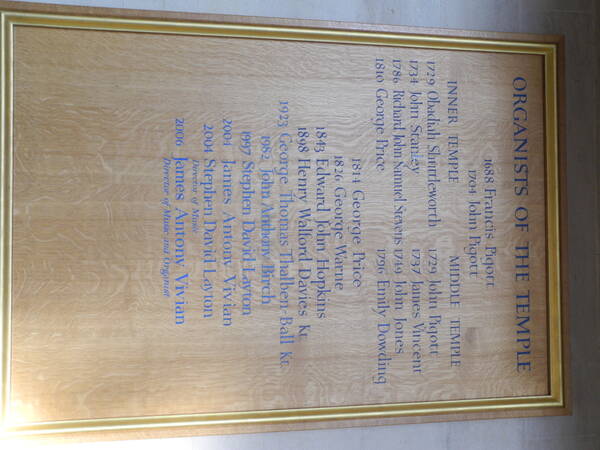 ORGANISTS OF THE TEMPLE
1688 Francis Pigott
1704 John Pigott
INNER TEMPLE
1729 Obadiah Shuttleworth
1734 John Stanley
1786 Richard John Samuel Stevens
1810 George Price
MIDDLE TEMPLE
1729 John Pigott
1737 James Vincent
1749 John Jones
1796 Emily Dowding
1814 George Price
1826 George Warne
1843 Edward John Hopkins
1898 Henry Walford Davies Kt
1923 George Thomas Thalben-Ball Kt.
1982 John Anthony Birch
1997 Stephen David Layton
2004 James Antony Vivian
2004 Stephen David Layton
Director of Music
2006 James Antony Vivian
Director of Music and Organist